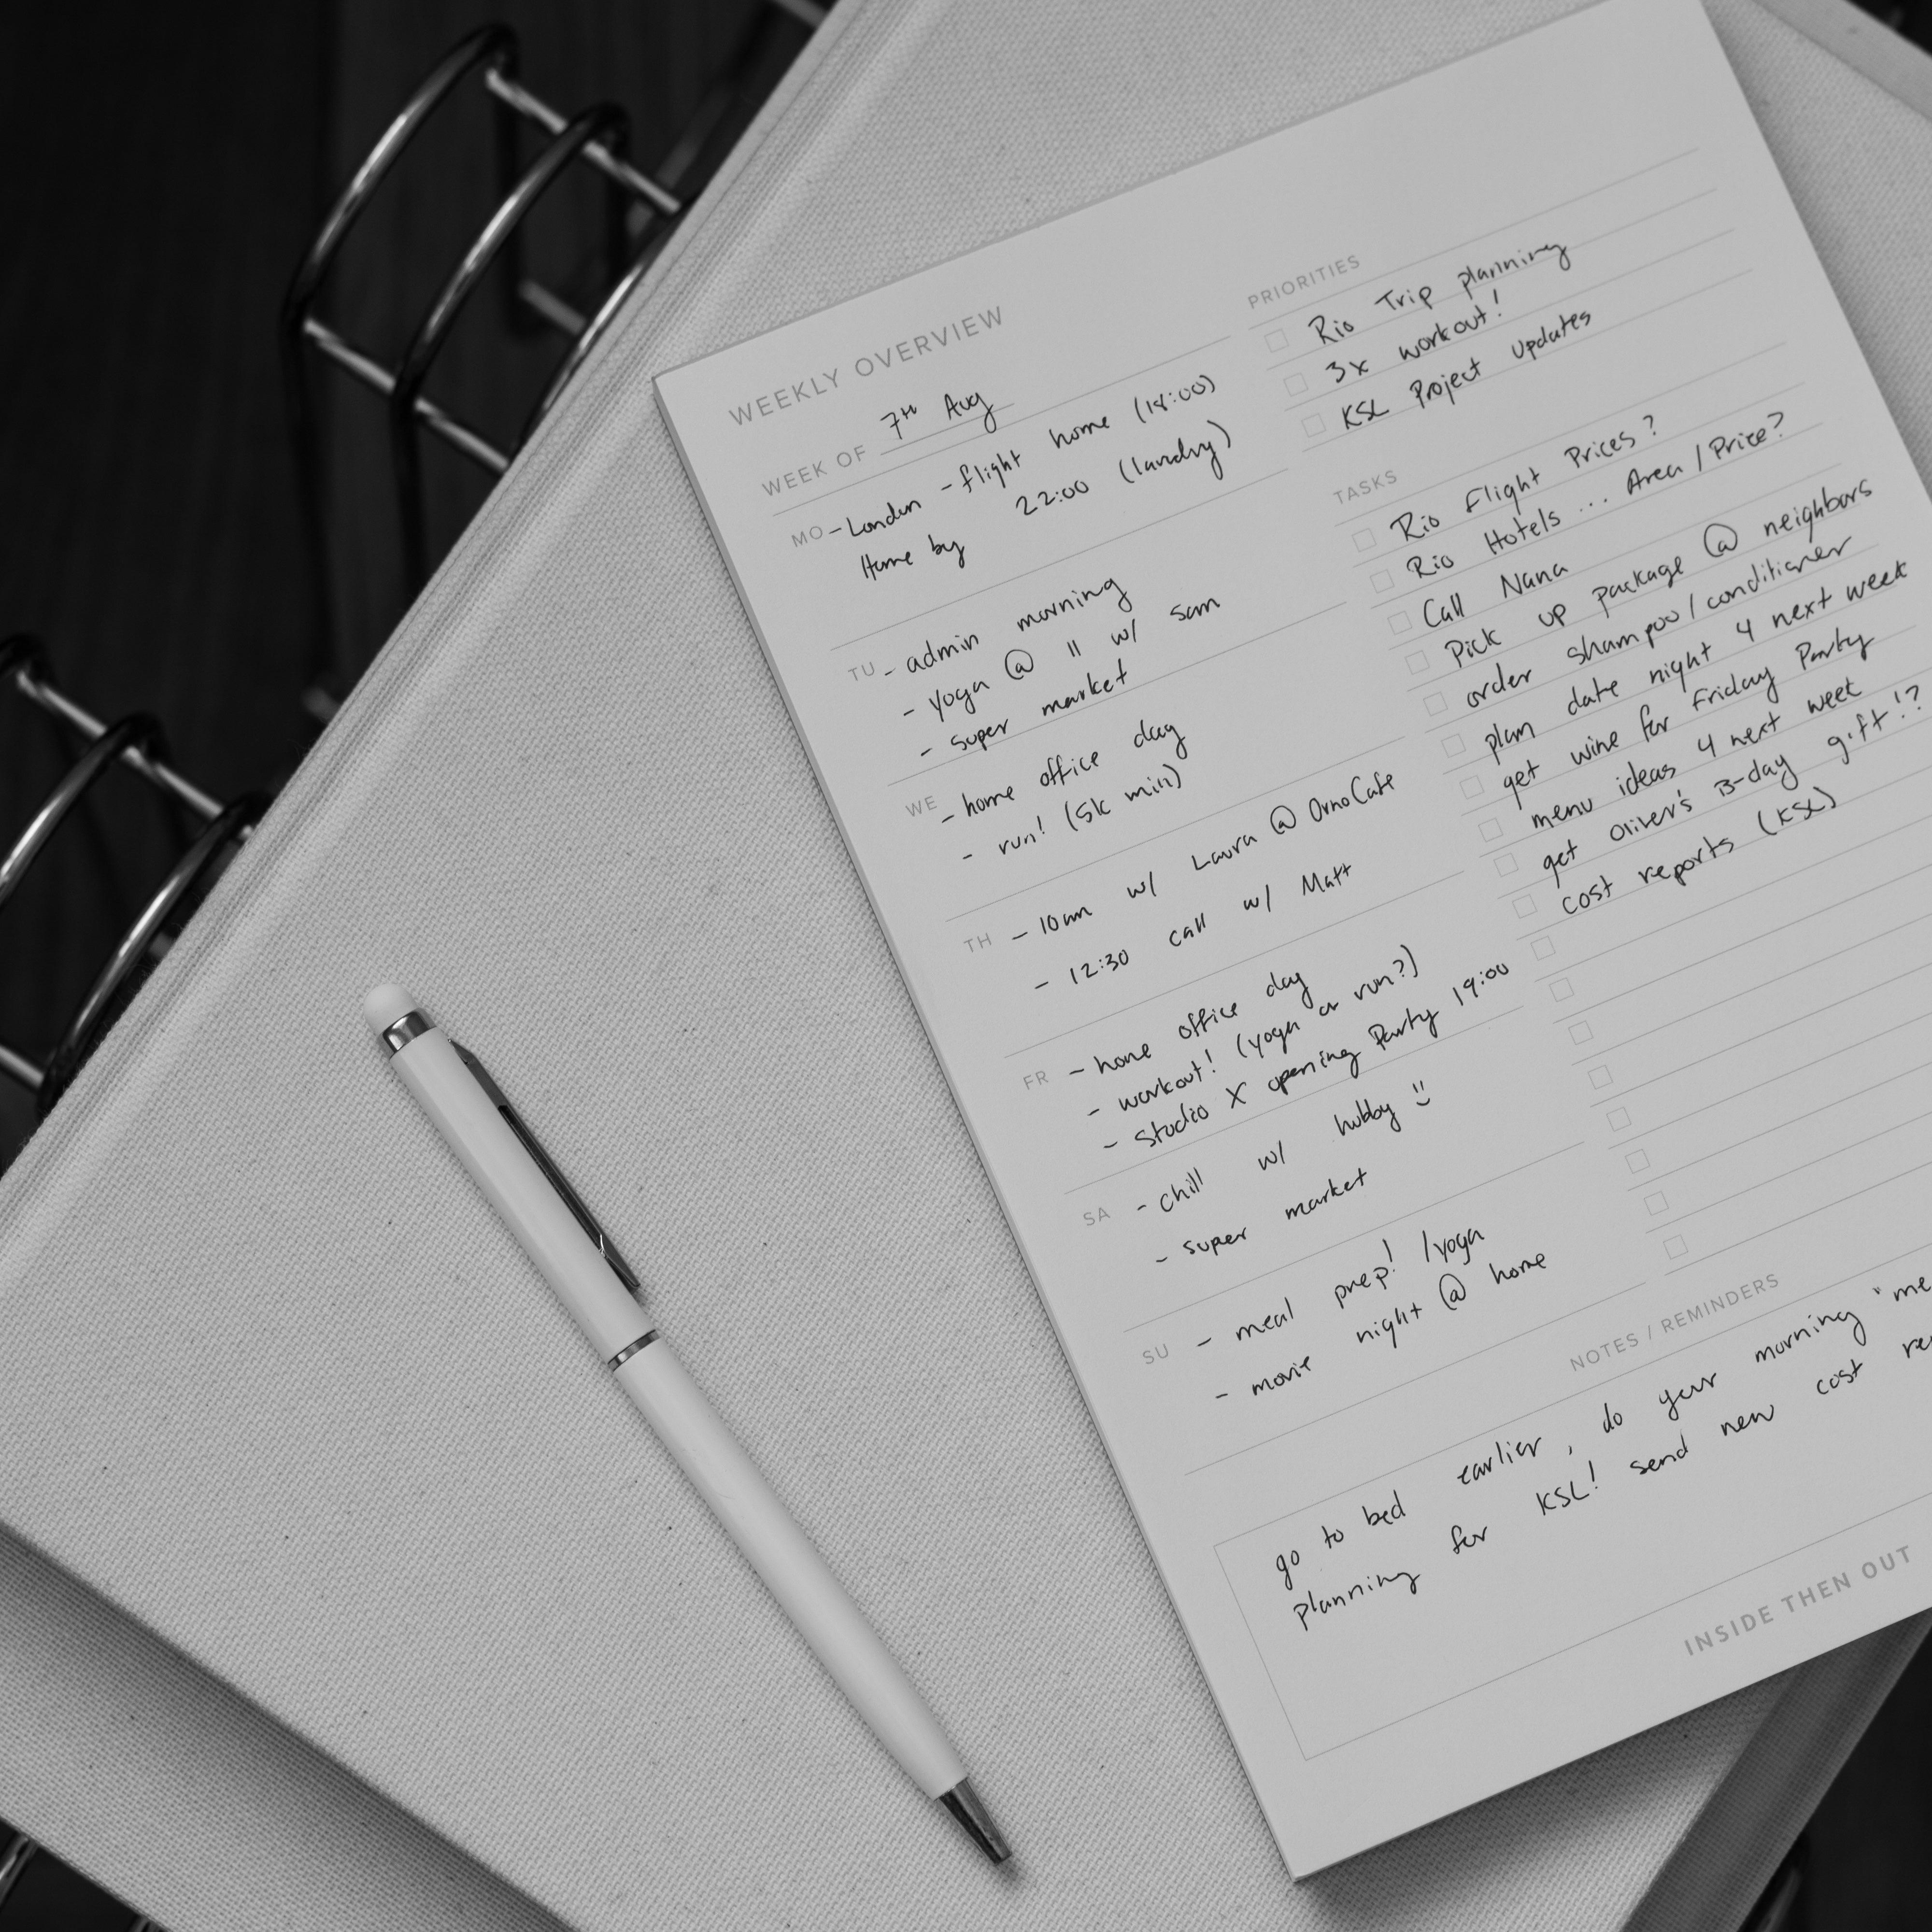 WEEKLY OVERVIEW
WEEK OF 7th Aug
MO - London - flight home (18:00)
Home by 22:00 (laundry)
TU - admin morning
- yoga @ 11 w/ sam
- super market
WE - home office day
- run! (5k min)
TH - 10am w/ Laura @ OrnoCafe
- 12:30 call w/ Matt
FR - home office day
- workout! (yoga or run?)
- Studio X opening Party 19:00
SA - chill w/ hubby
- super market
SU - meal prep! /yoga
- movie night @ home
PRIORITIES
Rio Trip planning
3x workout!
KSL Project Updates
TASKS
Rio Flight Prices?
Rio Hotels ... Area / Price?
Call Nana
Pick up package @ neighbors
order shampoo / conditioner
plan date night 4 next week
get wine for Friday Party
menu ideas 4 next week
get Oliver's B-day gift!?
cost reports (KSL)
NOTES / REMINDERS
go to bed earlier, do your morning "me
planning for KSL! send new cost re
INSIDE THEN OUT